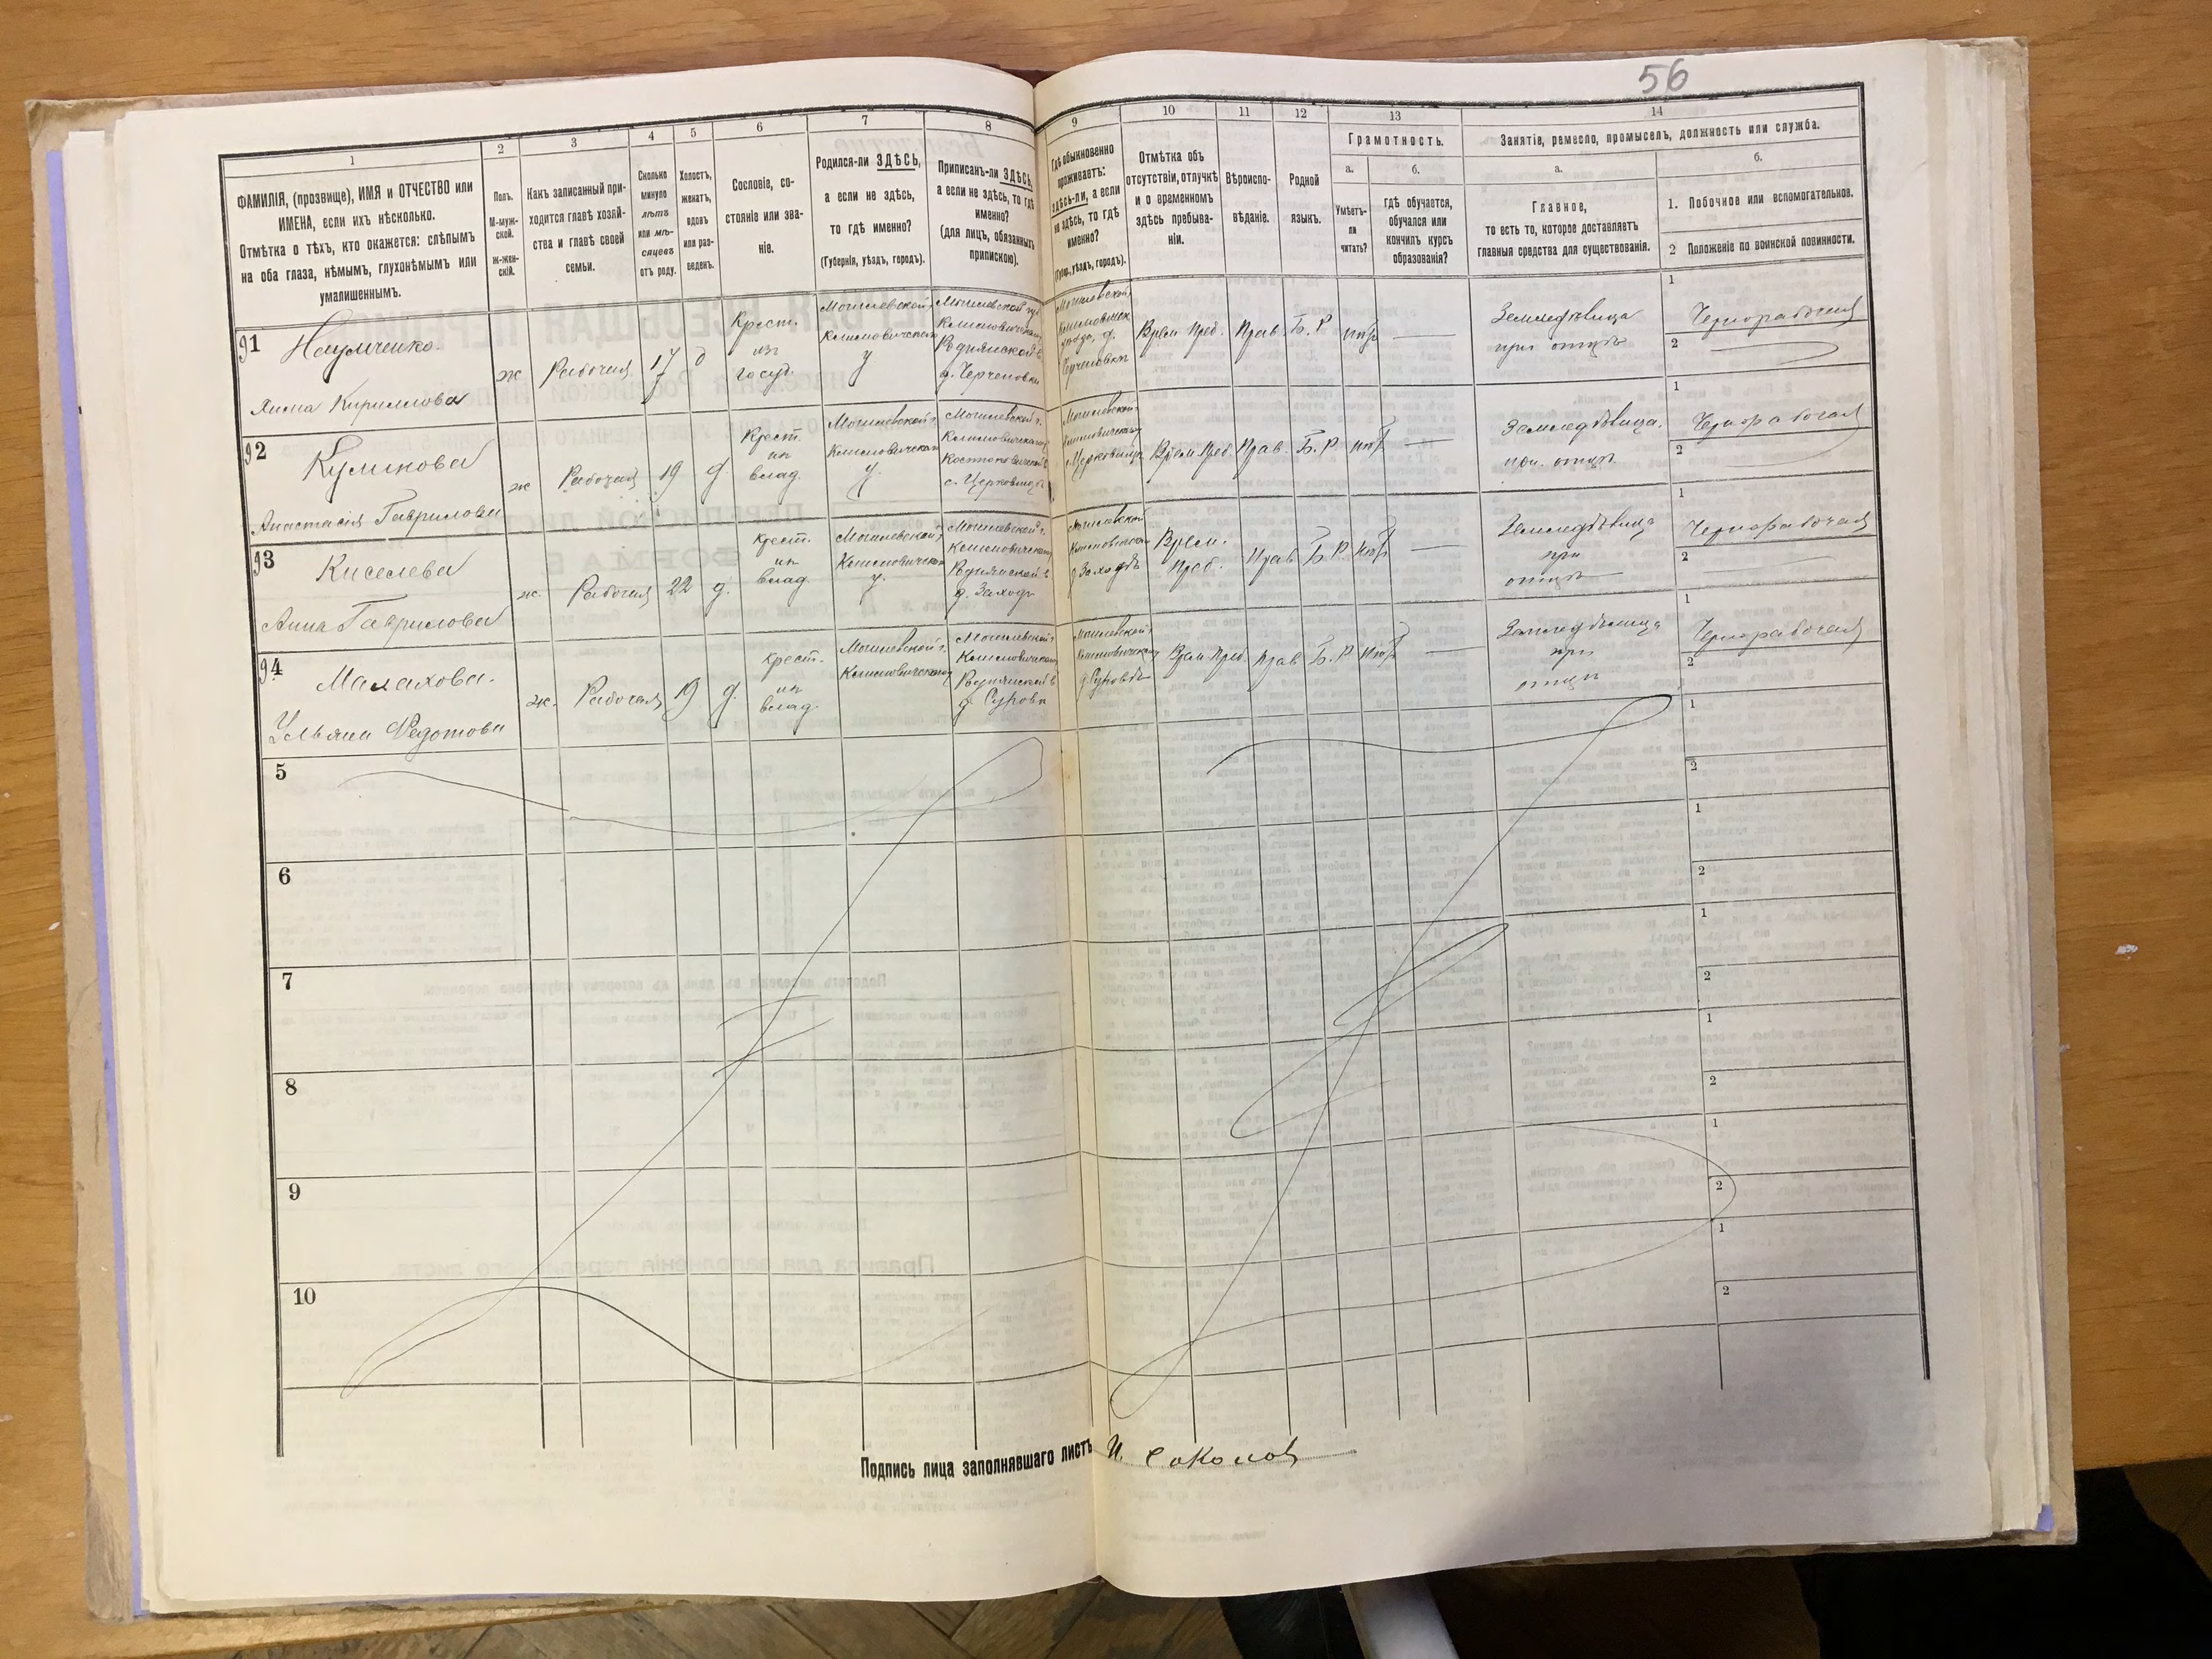 56
1
2
3
4
5
6
7
8
9
10
11
12
13
14
ФАМИЛІЯ, (прозвище), ИМЯ и ОТЧЕСТВО или
ИМЕНА, если ихъ нѣсколько.
Отмѣтка о тѣхъ, кто окажется: слѣпымъ
на оба глаза, нѣмымъ, глухонѣмымъ или
умалишеннымъ.
Полъ.
М-муж-
ской.
Ж-жен-
скій.
Какъ записанный при-
ходится главѣ хозяй-
ства и главѣ своей
семьи.
Сколько
минуло
лѣтъ
или мѣ-
сяцевъ
отъ роду.
Холостъ,
женатъ,
вдовъ
или раз-
веденъ.
Сословіе, со-
стояніе или зва-
ніе.
Родился-ли ЗДѢСЬ,
а если не здѣсь,
то гдѣ именно?
(Губернія, уѣздъ, городъ).
Приписанъ-ли ЗДѢСЬ,
а если не здѣсь, то гдѣ
именно?
(для лицъ, обязанныхъ
припискою).
Гдѣ обыкновенно
проживаетъ:
здѣсь-ли, а если
не здѣсь, то гдѣ
именно?
(Губер., уѣздъ, городъ).
Отмѣтка объ
отсутствіи, отлучкѣ
и о временномъ
здѣсь пребыва-
ніи.
Вѣроиспо-
вѣданіе.
Родной
языкъ.
Грамотность.
а.
Умѣетъ-
ли
читать?
б.
гдѣ обучается,
обучался или
кончилъ курсъ
образованія?
Занятіе, ремесло, промыселъ, должность или служба.
а.
Главное,
то есть то, которое доставляетъ
главныя средства для существованія.
б.
1. Побочное или вспомогательное.
2 Положеніе по воинской повинности.
91
Наумченко.
Анна Кириллова
ж
Рабочая
17
д
Крест.
изъ
госуд.
Могилевской г.
Климовичскаго
у
Могилевской губ
Климовичскаго
Роднянской в.
Могилевской
Врем Преб.
Прав.
Б. Р
нѣтъ
Земледѣлица
при отцѣ
1
Чернорабочая
2
92
Куликова
Анастасія Гаврилова
ж
Рабочая
19
д.
Крест.
ип
влад.
Могилевской г.
Климовичскаго
у.
Могилевской г.
Климовичскаго
Костюковичской в
Могилевской
Климовичскаго
Врем Преб.
Прав.
Б. Р
нѣтъ
Земледѣлица.
при. отцѣ
1
Чернорабочая
2
93
Киселева
Анна Гаврилова
ж.
Рабочая
22
д.
Крест.
ип
влад.
Могилевской г.
Климовичскаго
у.
Могилевской г.
Климовичскаго
Роднянской в
д. Заходъ
Могилевской
Климовичскаго
д Заходъ
Врем.
Преб.
Прав
Б. Р
нѣтъ
Земледѣлица
при
отцѣ
1
Чернорабочая
2
94
Малахова.
Ульяна Федотова
ж.
Рабочая
19
д.
Крест.
ип
влад.
Могилевской г.
Климовичскаго
Могилевской г.
Климовичскаго
Роднянской в
д. Суровъ
Могилевской г
Климовичскаго
Врем Преб
Прав
Б. Р
нѣтъ
Земледѣлица
при
отцѣ
1
Чернорабочая
2
5
1
2
6
1
2
7
1
2
8
1
2
9
1
2
10
1
2
Подпись лица заполнявшаго листъ И. Соколов